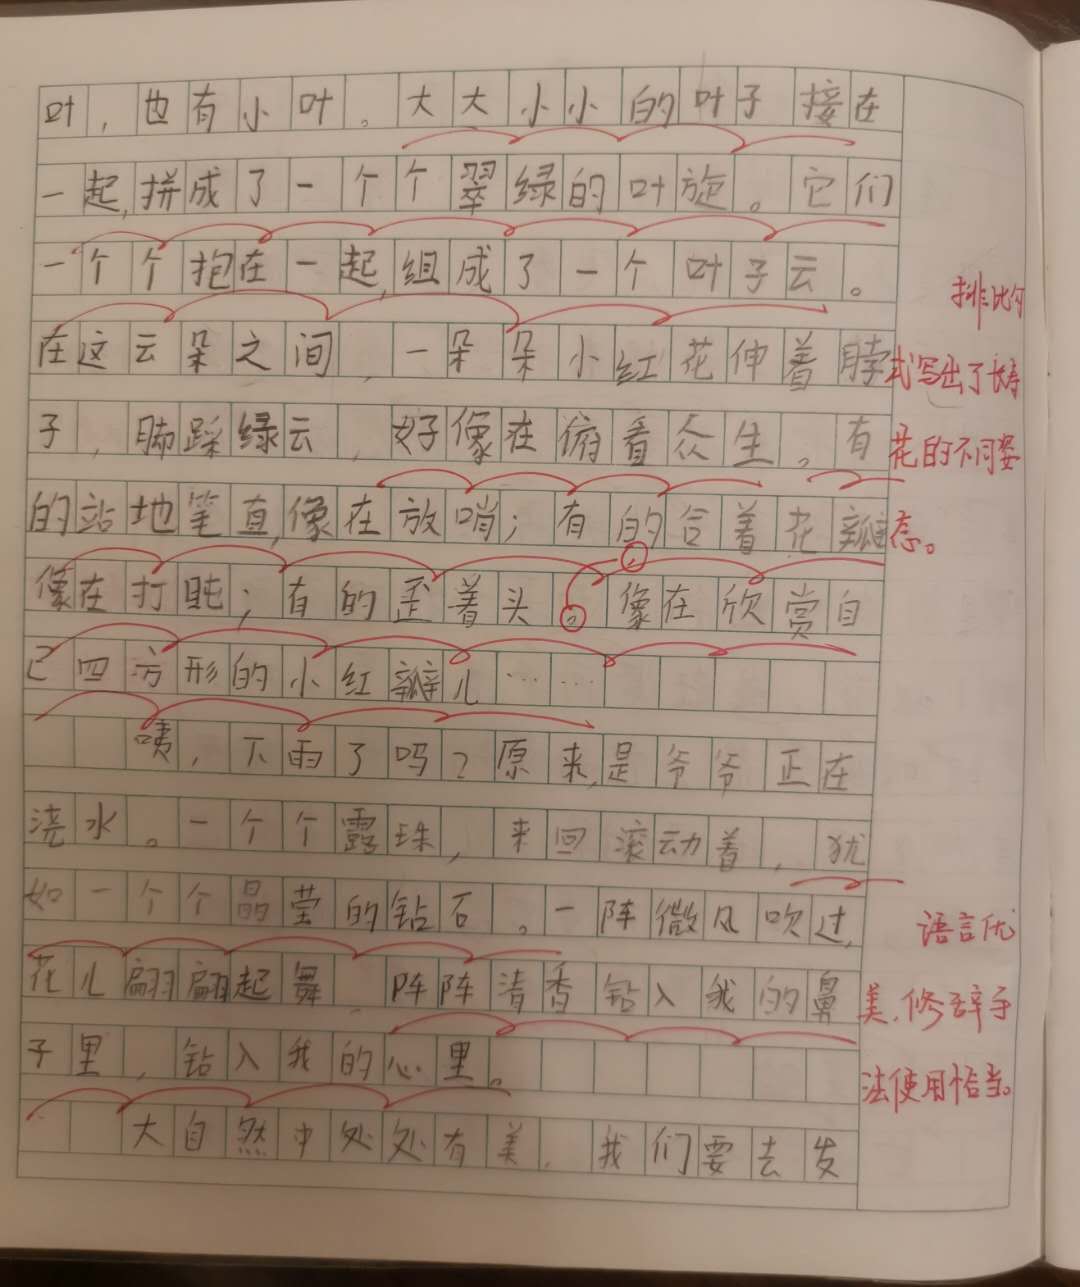 叶,也有小叶。大大小小的叶子接在
一起,拼成了一个个翠绿的叶旋。它们
一个个抱在一起,组成了一个叶子云。
在这云朵之间,一朵朵小红花伸着脖
子,脚踩绿云,好像在俯看众生。有
的站地笔直,像在放哨;有的合着花瓣
像在打盹;有的歪着头。像在欣赏自
己四方形的小红瓣儿……
咦,下雨了吗?原来,是爷爷正在
浇水。一个个露珠,来回滚动着,犹
如一个个晶莹的钻石。一阵微风吹过,
花儿翩翩起舞,阵阵清香钻入我的鼻
子里,钻入我的心里。
大自然中处处有美,我们要去发
排比句
式写出了长寿
花的不同姿
态。
语言优
美,修辞手
法使用恰当。